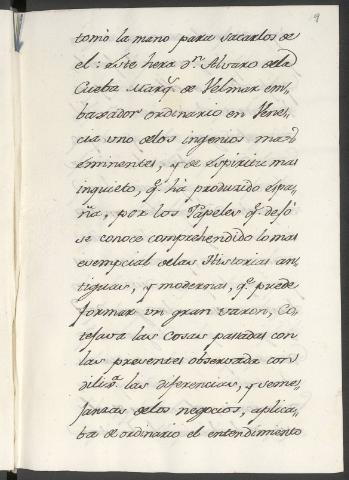 9
tomò la mano para sacarlos de
el: este hera Dn. Alvaro de la
Cueba Marq.s de Velmar em-
baxador ordinario en Vene-
cia uno de los ingenios mas
eminentes, y de espiritu mas
inquieto, q.e ha produzido Espa-
ña, por los Papeles q.e dejò
se conoce comprehendido lo mas
esempcial de las Historias an-
tiguas, y modernas, q.e puede
formar un gran varon, Co-
tejava las cosas pasadas con
las presentes observada con
dilix.a las diferencias, y seme-
janzas de los negocios, aplica-
ba de ordinario el entendimiento